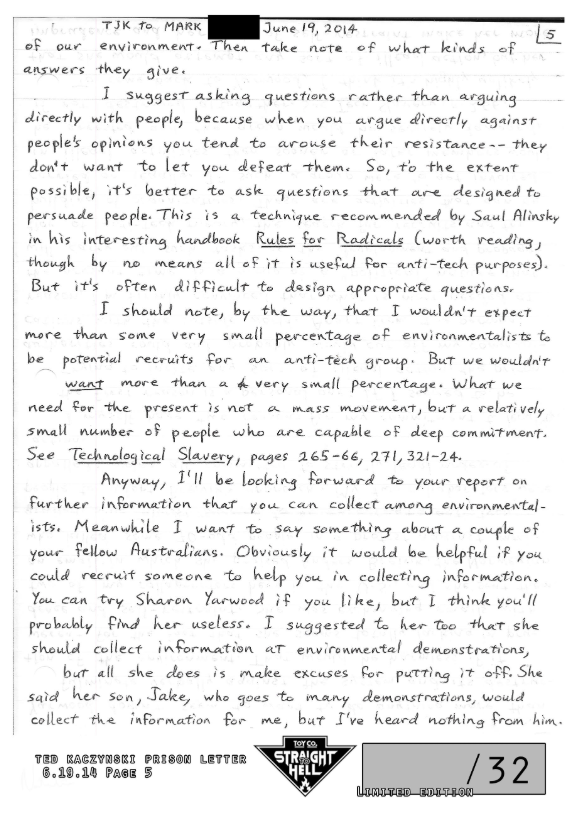 TJK to MARK June 19, 2014
5
of our environment. Then take note of what kinds of
answers they give.
I suggest asking questions rather than arguing
directly with people, because when you argue directly against
people's opinions you tend to arouse their resistance-- they
don't want to let you defeat them. So, to the extent
possible, it's better to ask questions that are designed to
persuade people. This is a technique recommended by Saul Alinsky
in his interesting handbook Rules for Radicals (worth reading,
though by no means all of it is useful for anti-tech purposes).
But it's often difficult to design appropriate questions.
I should note, by the way, that I wouldn't expect
more than some very small percentage of environmentalists to
be potential recruits for an anti-tech group. But we wouldn't
want more than a very small percentage. What we
need for the present is not a mass movement, but a relatively
small number of people who are capable of deep commitment.
See Technological Slavery, pages 265-66, 271, 321-24.
Anyway, I'll be looking forward to your report on
further information that you can collect among environmental-
ists. Meanwhile I want to say something about a couple of
your fellow Australians. Obviously it would be helpful if you
could recruit someone to help you in collecting information.
You can try Sharon Yarwood if you like, but I think you'll
probably find her useless. I suggested to her too that she
should collect information at environmental demonstrations,
but all she does is make excuses for putting it off. She
said her son, Jake, who goes to many demonstrations, would
collect the information for me, but I've heard nothing from him.
TED KACZYNSKI PRISON LETTER
6.19.14 PAGE 5
TOY CO.
STRAIGHT
TO
HELL
/32
LIMITED EDITION